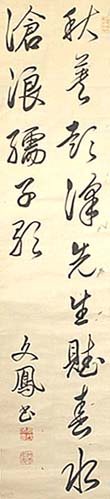 秋花彭澤先生賦春水
滄浪孺子歌
文鳳書